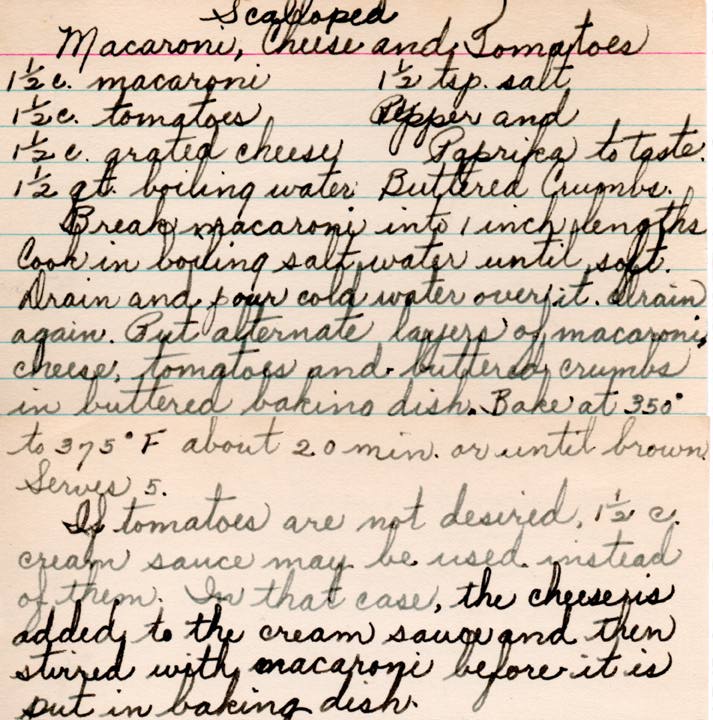 Scalloped
Macaroni, Cheese and Tomatoes
1½ c. macaroni 1½ tsp. salt
1½ c. tomatoes Pepper and
1½ c. grated cheese Paprika to taste.
1½ qt. boiling water Buttered Crumbs.
Break macaroni into 1 inch lengths
Cook in boiling salt water until soft.
Drain and pour cold water over it. Drain
again. Put alternate layers of macaroni,
cheese, tomatoes and buttered crumbs
in buttered baking dish. Bake at 350°
to 375° F about 20 min. or until brown.
Serves 5.
If tomatoes are not desired, 1½ c.
cream sauce may be used instead
of them. In that case, the cheese is
added to the cream sauce and then
stirred with macaroni before it is
put in baking dish.